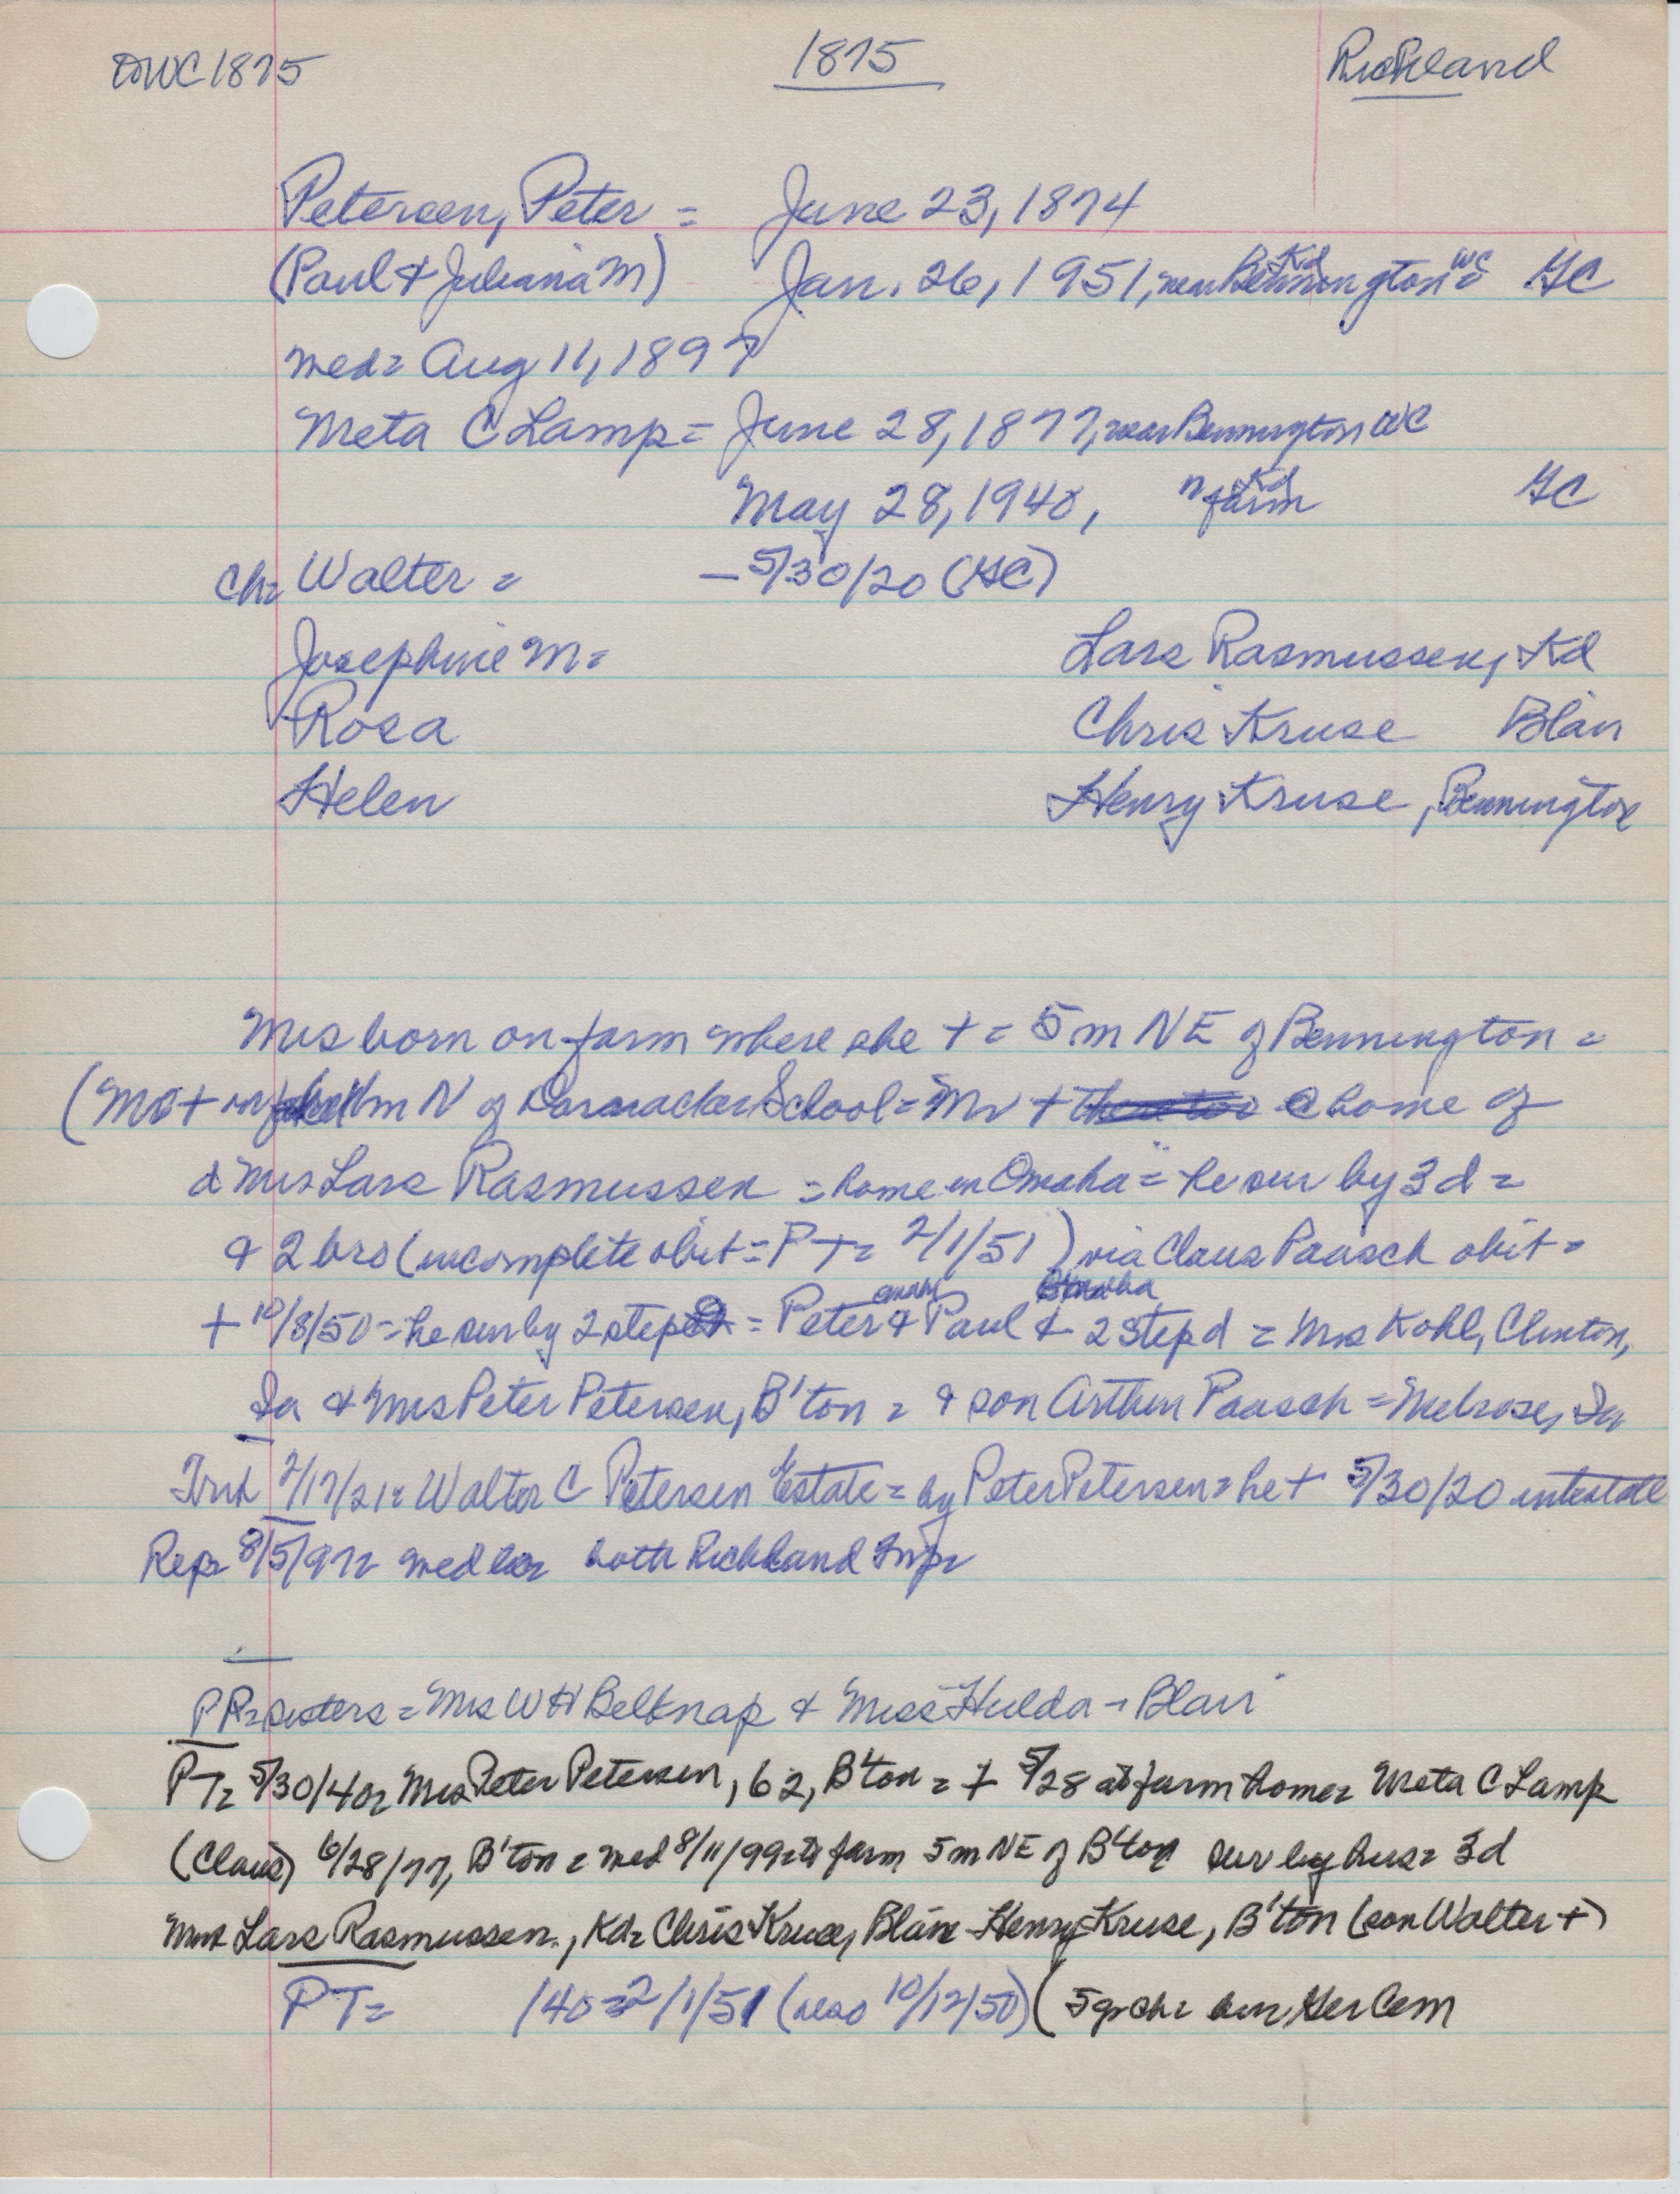 OWC 1875 1875 Richland
Petersen, Peter = June 23, 1874
(Paul & Juliana M) Jan. 26, 1951, near Bennington WC Kd GC
med = Aug 11, 1897
Meta C Lamp = June 28, 1877, near Bennington WC
May 28, 1940, " farm Kd GC
Ch = Walter = – 5/30/20 (GC)
Josephine M = Lars Rasmussen, Kd
Rosa Chris Kruse Blair
Helen Henry Kruse, Bennington
Mrs born on farm where she + = 5 m NE of Bennington =
m N of School = Mr + @ home of
d Mrs Lars Rasmussen = home in Omaha = he sur by 3 d =
& 2 bros (incomplete obit = PT = 2/1/51) via Claus Paasch obit =
+ 10/8/50 = he sur by 2 step = Peter & Paul Omaha & 2 step d = Mrs Kohl, Clinton,
Ia & Mrs Peter Petersen, B'ton = & son Arthur Paasch = Melrose, Ia
Trib 2/17/21 = Walter C Petersen Estate = by Peter Petersen = he + 5/30/20 intestate
Rep = 8/5/97 = med lic = both Richland Twp =
PP = sisters = Mrs W H Belknap & Miss Hulda – Blair
PT = 5/30/40 = Mrs Peter Petersen, 62, B'ton = + 5/28 at farm home = Meta C Lamp
(Claus) 6/28/77, B'ton = med 8/11/99 = to farm 5 m NE of B'ton sur by hus = 3 d
Mrs Lars Rasmussen, Kd = Chris Kruse, Blair = Henry Kruse, B'ton (son Walter +)
PT = /40 = 2/1/51 (also 10/12/50) (5 gr ch = bur Ger Cem